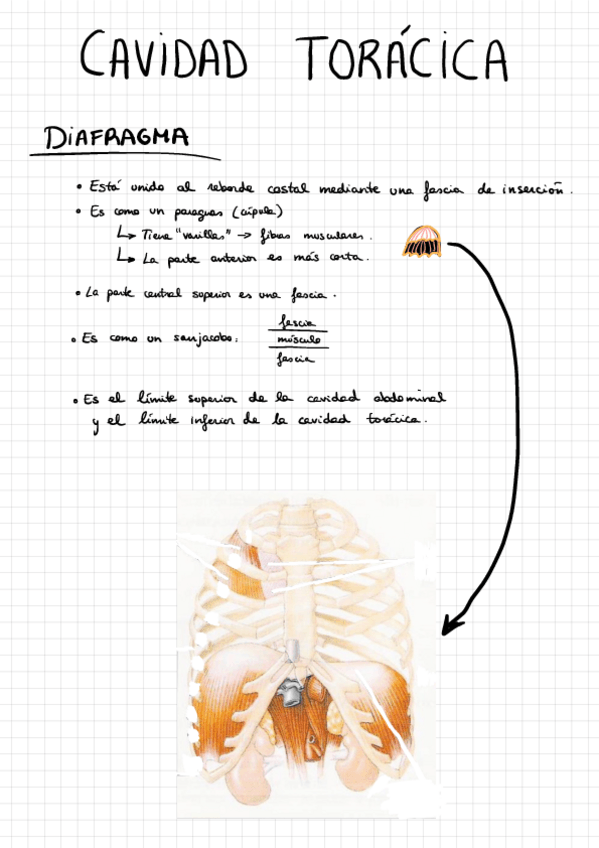 CAVIDAD TORÁCICA
DIAFRAGMA
• Está unido al reborde costal mediante una fascia de inserción.
• Es como un paraguas (cúpula)
↳ Tiene "varillas" → fibras musculares.
↳ La parte anterior es más corta.
• La parte central superior es una fascia.
• Es como un sanjacobo:
fascia
músculo
fascia
• Es el límite superior de la cavidad abdominal
y el límite inferior de la cavidad torácica.